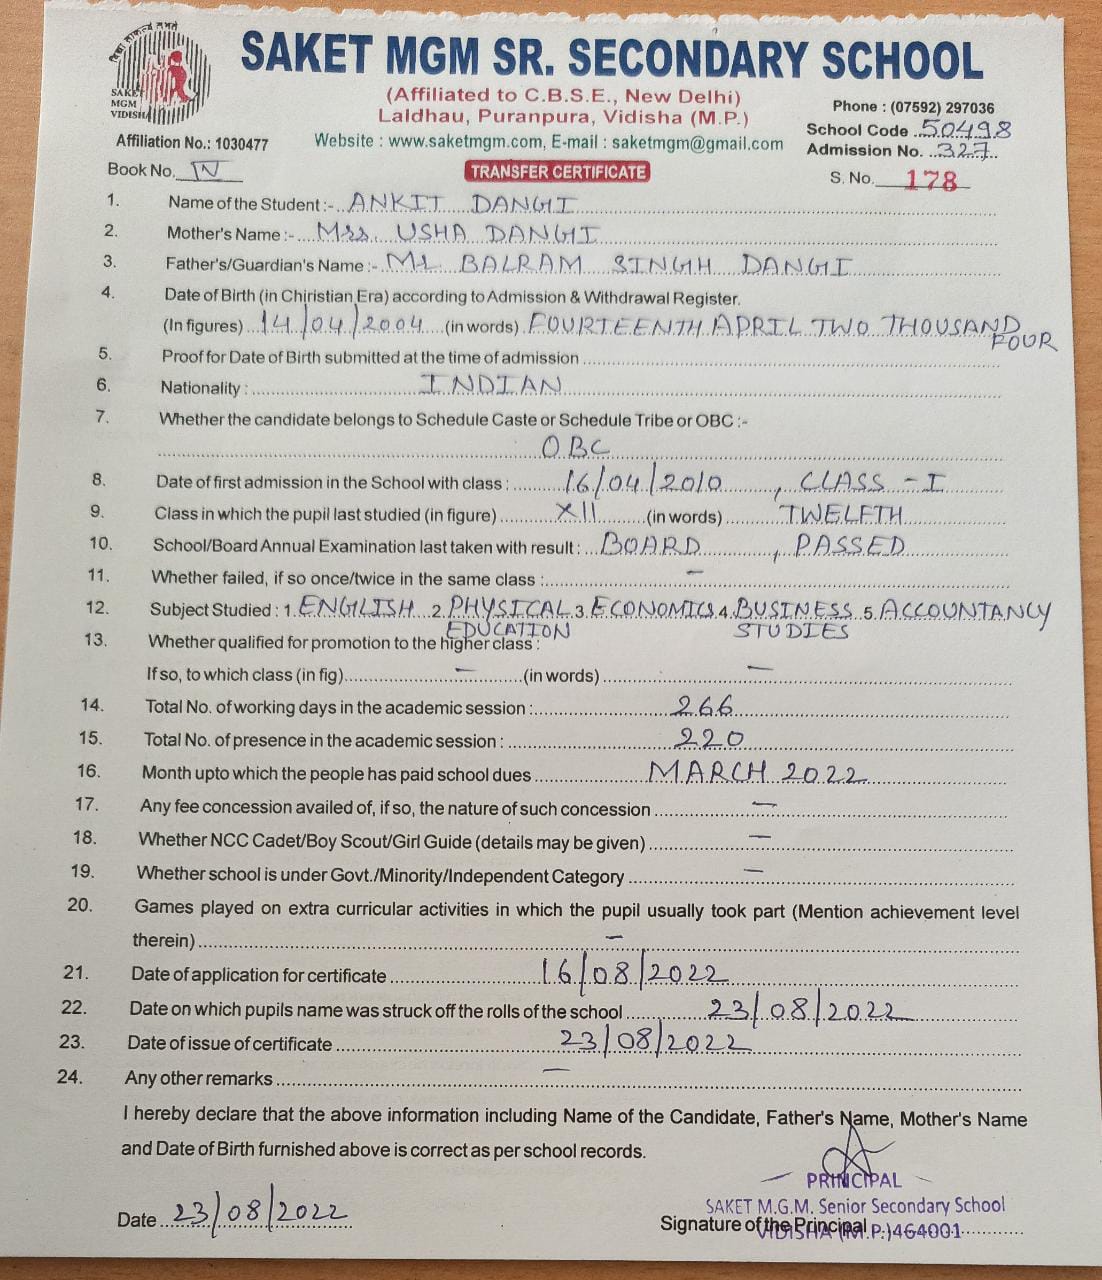 SAKET MGM SR. SECONDARY SCHOOL
SAKET
MGM
VIDISHA
(Affiliated to C.B.S.E., New Delhi)
Laldhau, Puranpura, Vidisha (M.P.)
Phone : (07592) 297036
School Code 50498
Affiliation No.: 1030477
Website : www.saketmgm.com, E-mail : saketmgm@gmail.com
Admission No. 327
Book No. IV
TRANSFER CERTIFICATE
S. No. 178
1. Name of the Student :- ANKIT DANGI
2. Mother's Name :- Mrs. USHA DANGI
3. Father's/Guardian's Name :- Mr BALRAM SINGH DANGI
4. Date of Birth (in Chiristian Era) according to Admission & Withdrawal Register.
(In figures) 14/04/2004 (in words) FOURTEENTH APRIL TWO THOUSAND
FOUR
5. Proof for Date of Birth submitted at the time of admission
6. Nationality : INDIAN
7. Whether the candidate belongs to Schedule Caste or Schedule Tribe or OBC :-
OBC
8. Date of first admission in the School with class : 16/04/2010, CLASS - I
9. Class in which the pupil last studied (in figure) XII (in words) TWELFTH
10. School/Board Annual Examination last taken with result : BOARD, PASSED
11. Whether failed, if so once/twice in the same class : -
12. Subject Studied : 1. ENGLISH 2. PHYSICAL 3. ECONOMICS 4. BUSINESS 5. ACCOUNTANCY
EDUCATION STUDIES
13. Whether qualified for promotion to the higher class :
If so, to which class (in fig) - (in words) -
14. Total No. of working days in the academic session : 266
15. Total No. of presence in the academic session : 220
16. Month upto which the people has paid school dues MARCH 2022
17. Any fee concession availed of, if so, the nature of such concession -
18. Whether NCC Cadet/Boy Scout/Girl Guide (details may be given) -
19. Whether school is under Govt./Minority/Independent Category -
20. Games played on extra curricular activities in which the pupil usually took part (Mention achievement level
therein) -
21. Date of application for certificate 16/08/2022
22. Date on which pupils name was struck off the rolls of the school 23/08/2022
23. Date of issue of certificate 23/08/2022
24. Any other remarks -
I hereby declare that the above information including Name of the Candidate, Father's Name, Mother's Name
and Date of Birth furnished above is correct as per school records.
PRINCIPAL
SAKET M.G.M. Senior Secondary School
Date 23/08/2022
Signature of the Principal
VIDISHA (M.P.) 464001